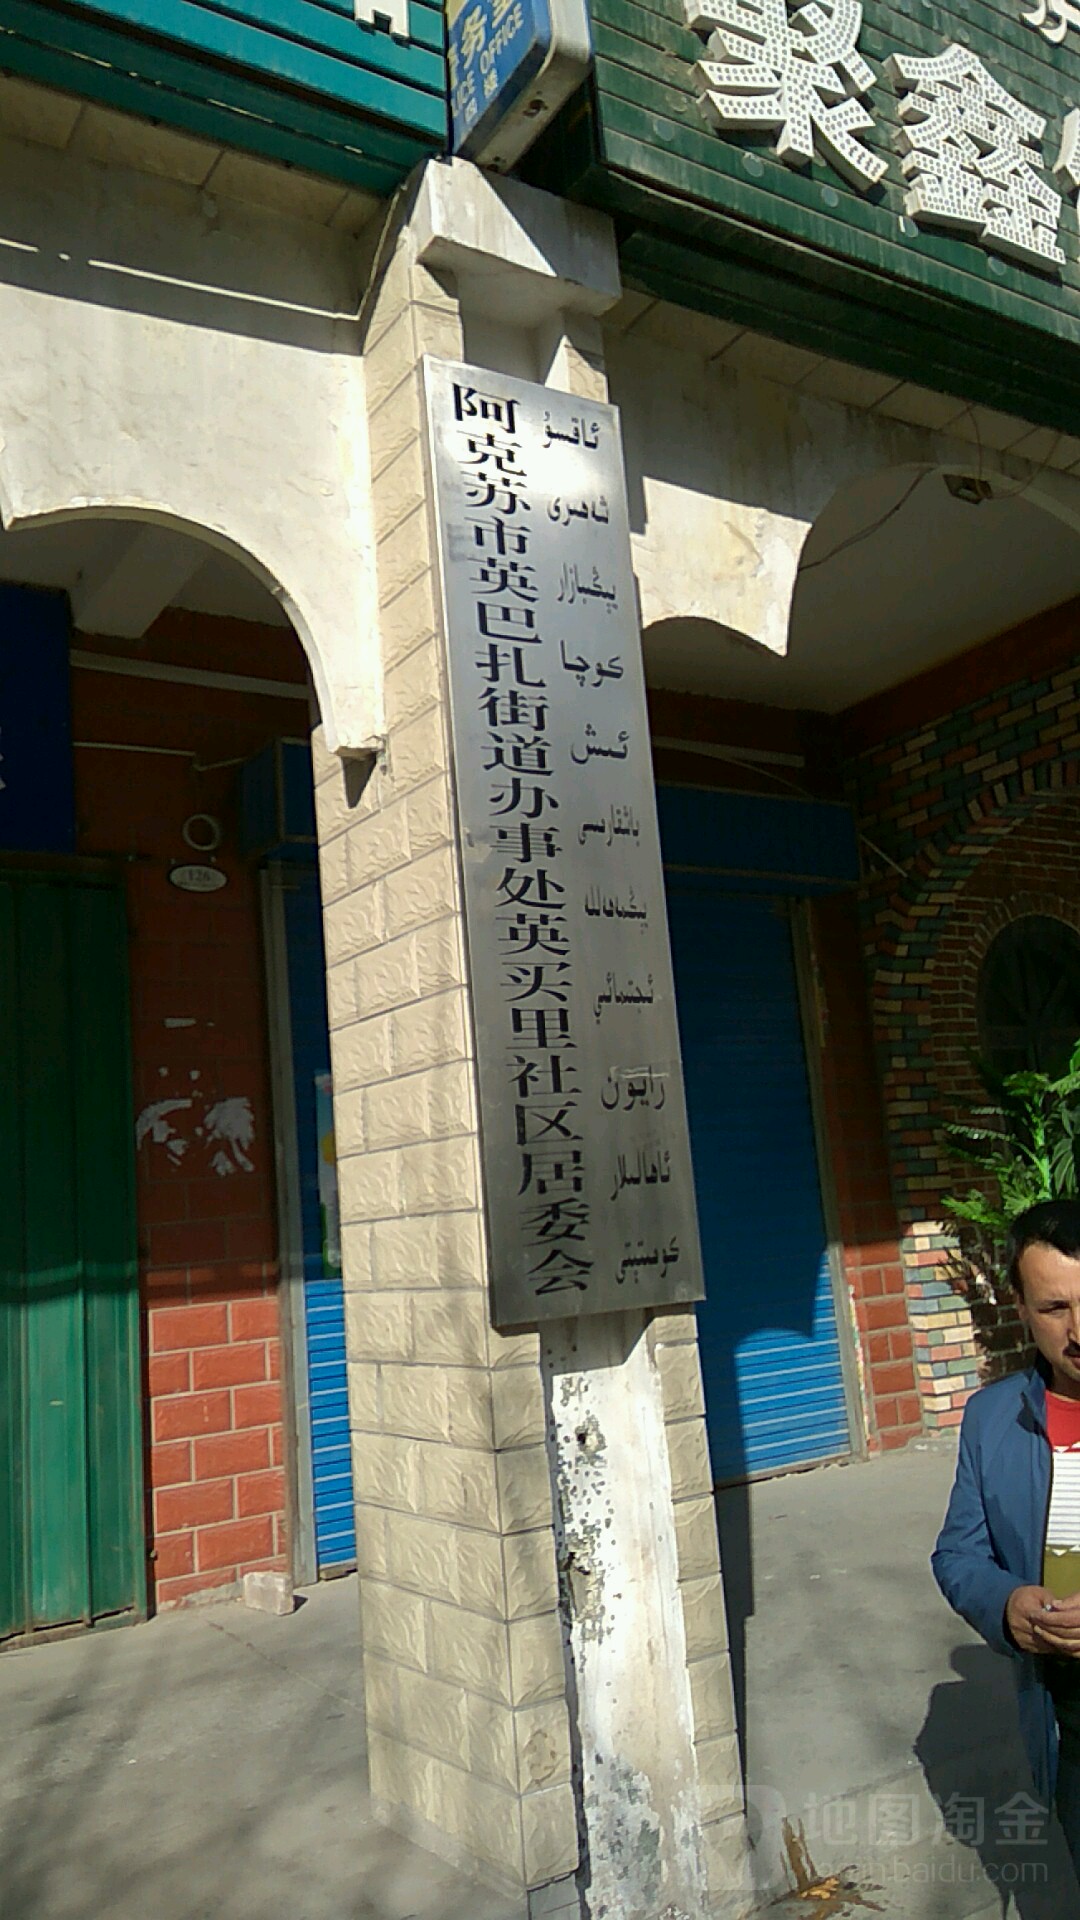 务室
ICE OFFICE
四楼
聚鑫
阿克苏市英巴扎街道办事处英买里社区居委会
ئاقسۇ
شەھىرى
يېڭىبازار
كوچا
ئىش
باشقارمىسى
يېڭىمەھەللە
ئىجتىمائىي
رايون
ئاھالىلار
كومىتېتى
126
地图淘金